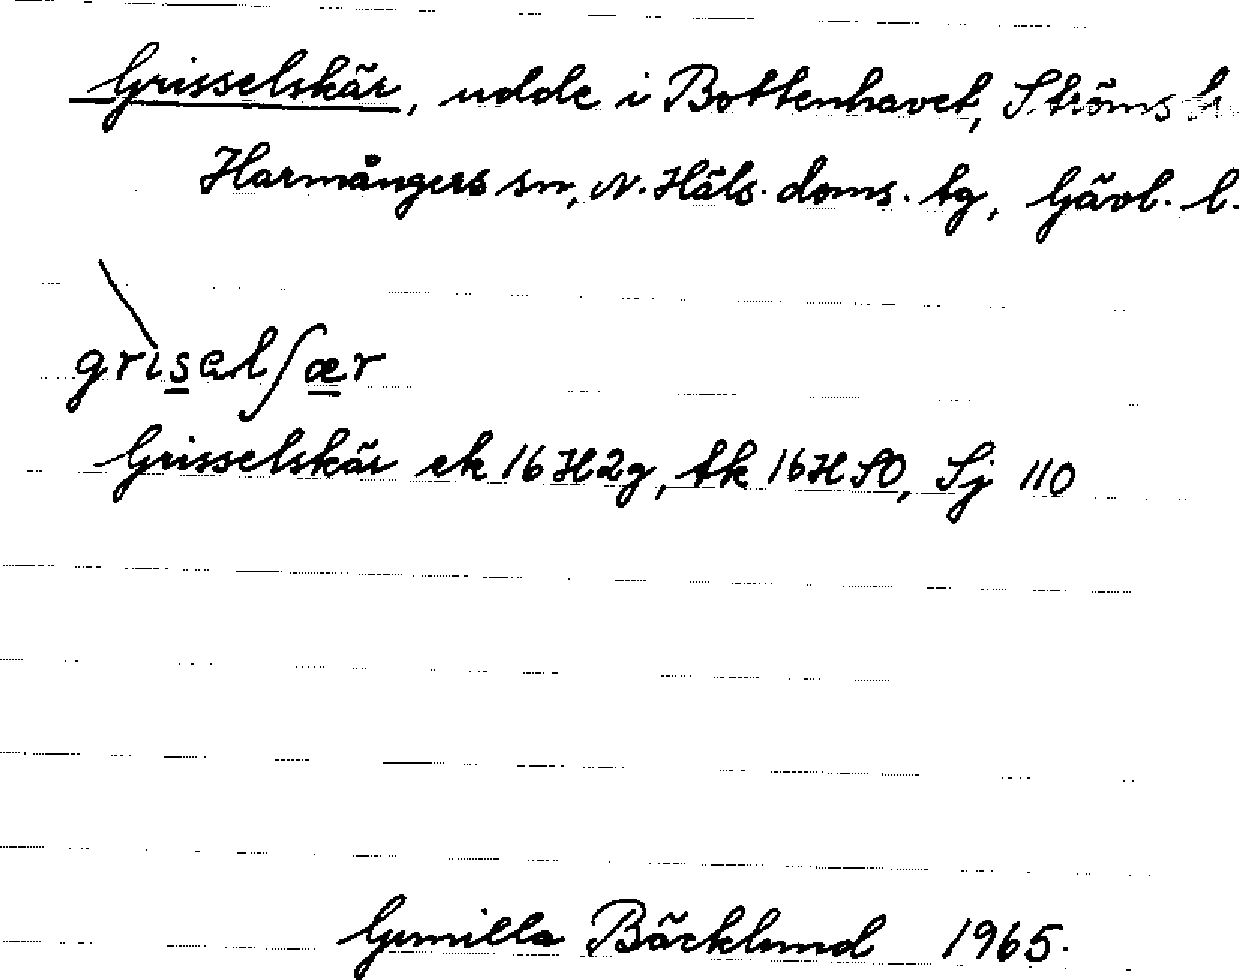 Grisselskär, udde i Bottenhavet, Ströms
Harmångers sn, N. Häls. doms. tg, Gävl. l.
grisalʃær
Grisselskär ek 16H2g, tk 16HSO, Sj 110
Gunilla Bäcklund 1965.